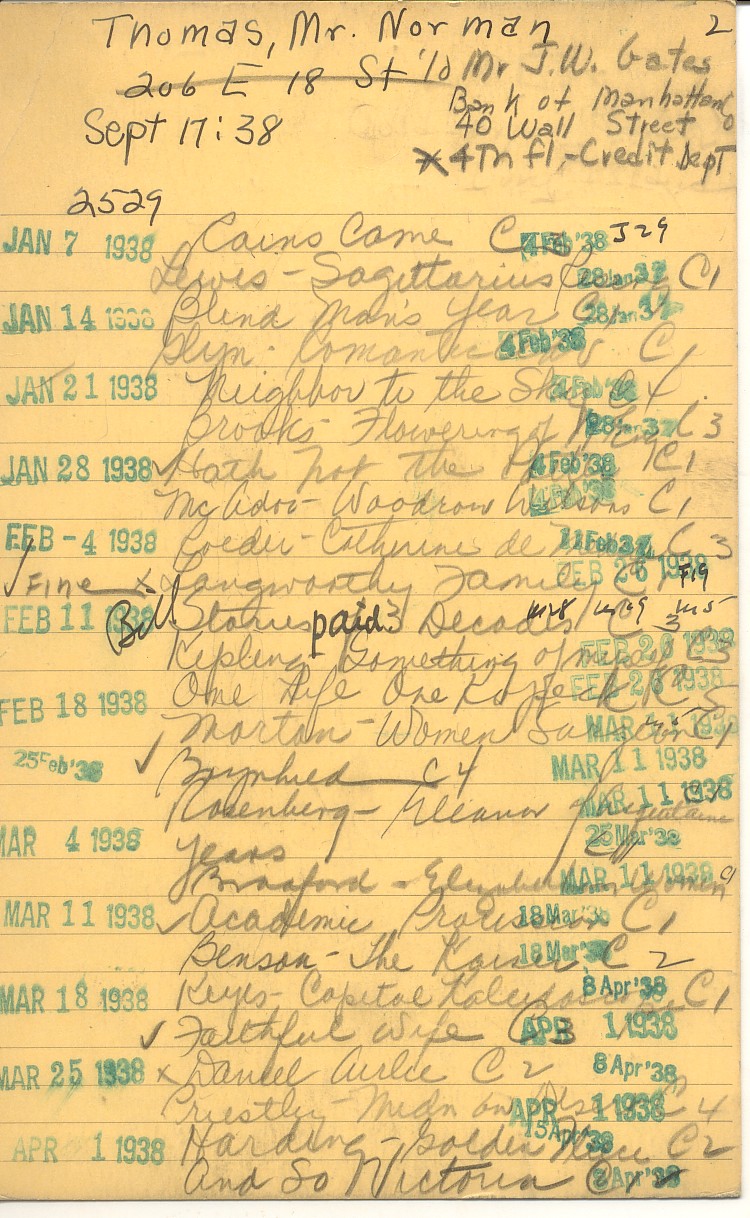 Thomas, Mr. Norman 2
206 E 18 St '10 Mr J.W. Gates
Bank of Manhattan Co
Sept 17:38 40 Wall Street
x 4Th fl,-Credit Dept
2529
JAN 7 1938 Cains Came C 4 Feb '38 J29
Lewis - Sagittarius 28 Jan 37 C1
JAN 14 1938 Blind Man's Year C1 28 Jan 37
Glyn - Romantic 4 Feb '38 C1
JAN 21 1938 Neighbor to the Sky Feb '38 C4
Brooks - Flowering of N. Eng 28 Jan 37 C3
JAN 28 1938 ✓ Hath Not the 4 Feb '38 C1
McAdoo - Woodrow Wilsons C1
FEB -4 1938 Roeder - Catherine de 11 Feb 37 C3
✓ Fine x Langworthy Family C1 FEB 26 1938 F19
FEB 11 1938 Bill Stories paid 3 Decades C3 M5
Kipling Something of myself FEB 26 1938 C3
FEB 18 1938 One Life One Kopeck FEB 26 1938
Morton - Women MAR 1938 C1
25 Feb '38 ✓ Brynhild C4 MAR 11 1938
Rosenberg - Eleanor of Aquitaine MAR 11 1938 C1
MAR 4 1938 Years 25 Mar '38
Bradford - Elizabethan Women MAR 11 1938 C1
MAR 11 1938 ✓ Academic Procession 18 Mar '38 C1
Benson - The Kaiser 18 Mar '38 C2
MAR 18 1938 Keyes - Capital Kaleidoscope 8 Apr '38 C1
✓ Faithful Wife APR 1 1938
MAR 25 1938 x Daniel Airlie C2 8 Apr '38
Priestley - Midn on Desert APR 1 1938 C4
APR 1 1938 Harding - Golden 15 Apr '38 C2
And So Victoria C 8 Apr '38